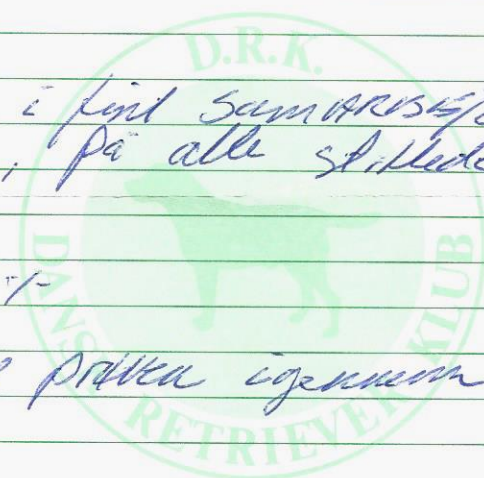 D.R.K.
i fint samarbejd
, på alle stillede
-/-
prøven igennem
DANSK RETRIEVER KLUB